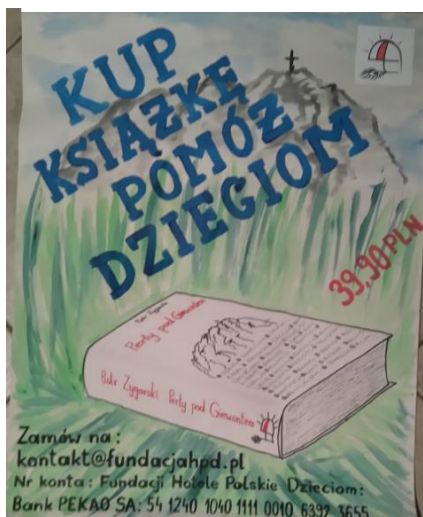 KUP
KSIĄŻKĘ
POMÓŻ
DZIECIOM
39,90 PLN
Piotr Zygarski
Perły pod Giewontem
Piotr Zygarski Perły pod Giewontem
Zamów na:
kontakt@fundacjahpd.pl
Nr konta: Fundacji Hotele Polskie Dzieciom:
Bank PEKAO SA: 54 1240 1040 1111 0010 6392 3655